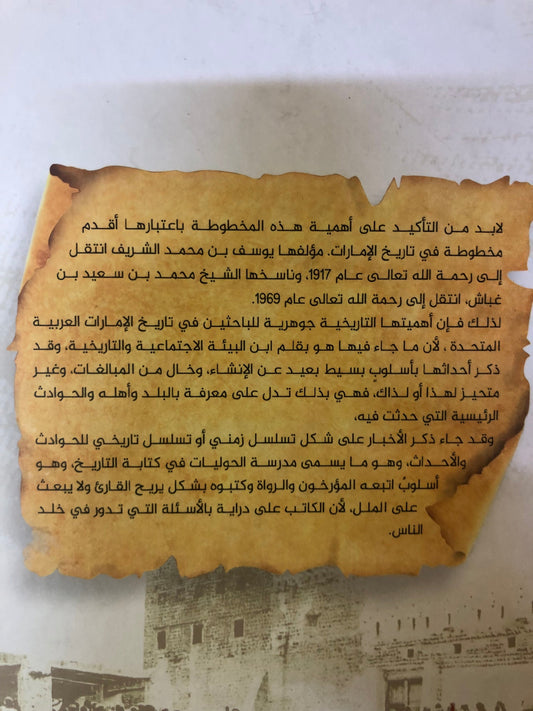 لابد من التأكيد على أهمية هذه المخطوطة باعتبارها أقدم
مخطوطة في تاريخ الإمارات. مؤلفها يوسف بن محمد الشريف انتقل
إلى رحمة الله تعالى عام 1917، وناسخها الشيخ محمد بن سعيد بن
غباش، انتقل إلى رحمة الله تعالى عام 1969.
لذلك فإن أهميتها التاريخية جوهرية للباحثين في تاريخ الإمارات العربية
المتحدة ، لأن ما جاء فيها هو بقلم ابن البيئة الاجتماعية والتاريخية، وقد
ذكر أحداثها بأسلوبٍ بسيط بعيد عن الإنشاء، وخال من المبالغات، وغير
متحيز لهذا أو لذاك، فهي بذلك تدل على معرفة بالبلد وأهله والحوادث
الرئيسية التي حدثت فيه،
وقد جاء ذكر الأخبار على شكل تسلسل زمني أو تسلسل تاريخي للحوادث
والأحداث، وهو ما يسمى مدرسة الحوليات في كتابة التاريخ، وهو
أسلوبٌ اتبعه المؤرخون والرواة وكتبوه بشكل يريح القارئ ولا يبعث
على الملل، لأن الكاتب على دراية بالأسئلة التي تدور في خلد
الناس.